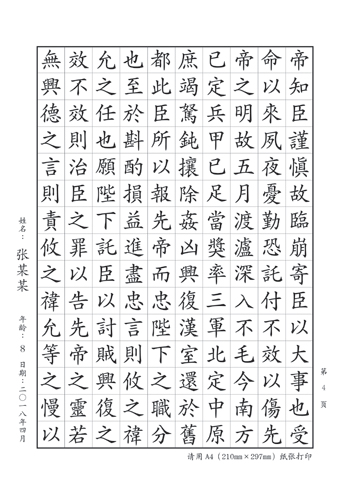 帝知臣謹慎故臨崩寄臣以大事也受
命以來夙夜憂勤恐託付不效以傷先
帝之明故五月渡瀘深入不毛今南方
已定兵甲已足當獎率三軍北定中原
庶竭駑鈍攘除姦凶興復漢室還於舊
都此臣所以報先帝而忠陛下之職分
也至於斟酌損益進盡忠言則攸之禕
允之任也願陛下託臣以討賊興復之
效不效則治臣之罪以告先帝之靈若
無興德之言則責攸之禕允等之慢以
姓名：张某某 年龄：8 日期：二〇一八年四月
第4页
请用A4（210mm×297mm）纸张打印